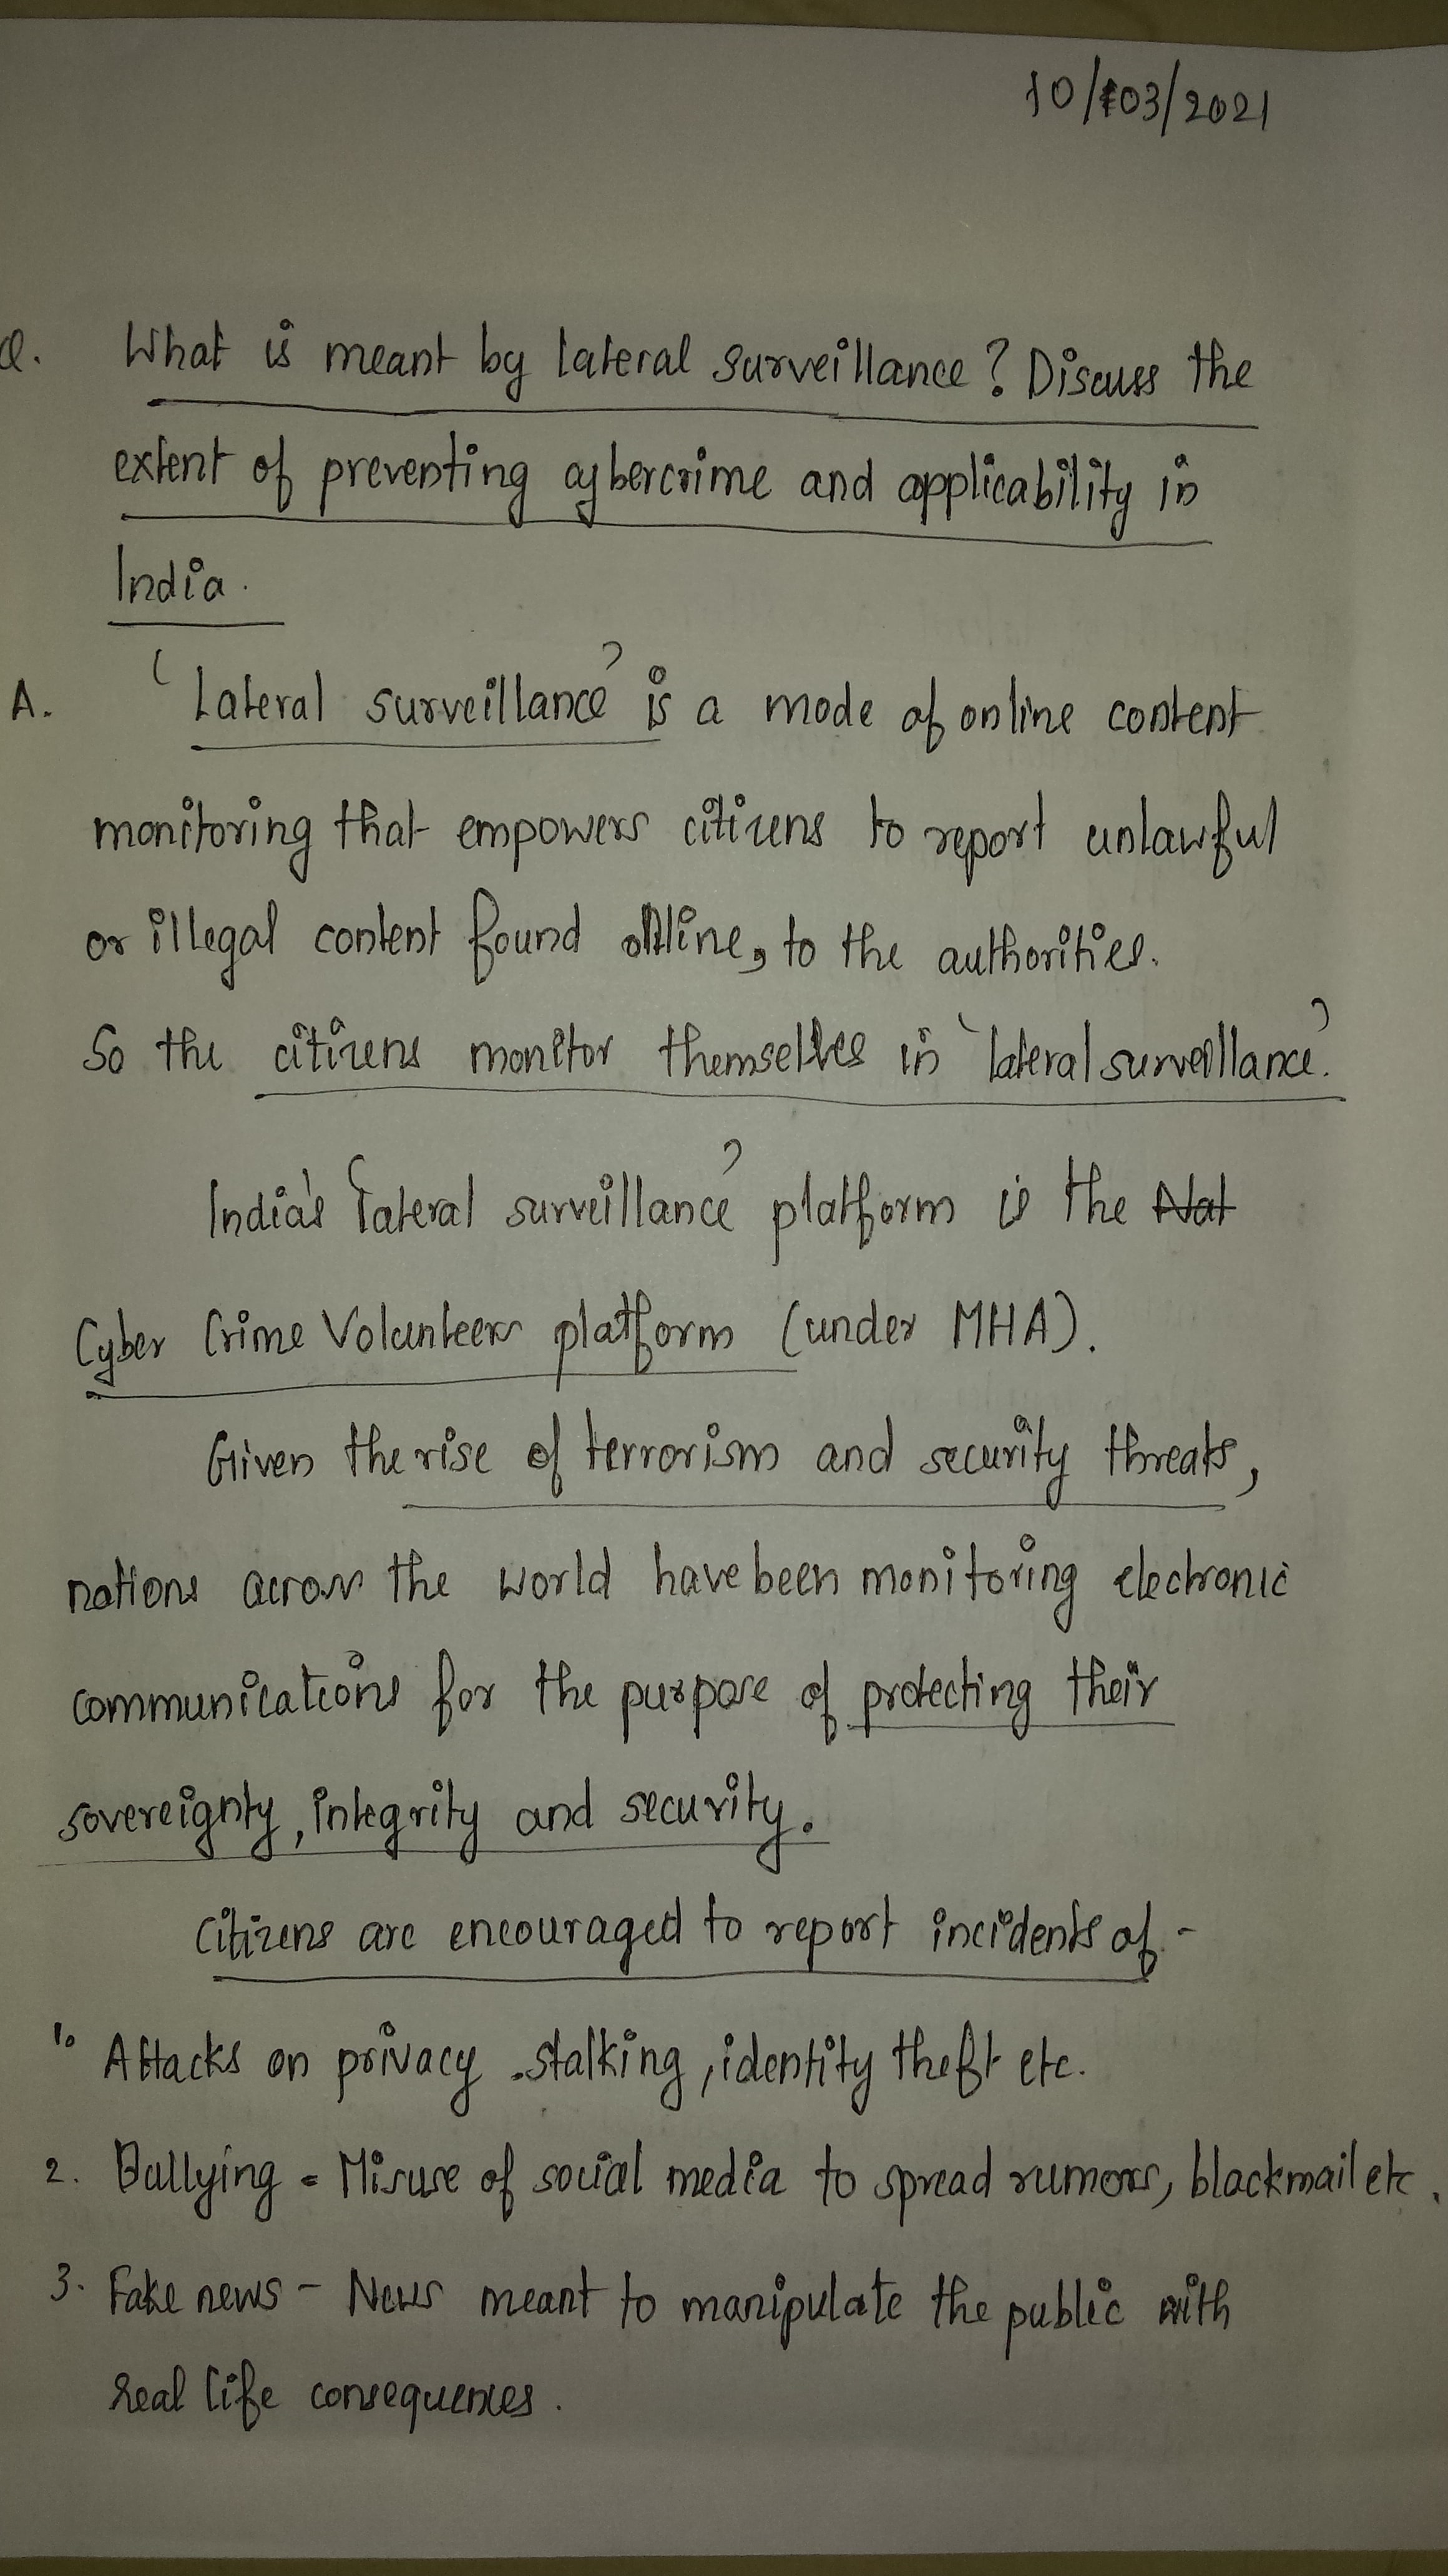 10/03/2021
Q. What is meant by lateral surveillance? Discuss the
extent of preventing cybercrime and applicability in
India.
A. 'Lateral surveillance' is a mode of online content
monitoring that empowers citizens to report unlawful
or illegal content found online, to the authorities.
So the citizens monitor themselves in 'lateral surveillance'.
India's 'lateral surveillance' platform is the Nat
Cyber Crime Volunteers platform (under MHA).
Given the rise of terrorism and security threats,
nations across the world have been monitoring electronic
communications for the purpose of protecting their
sovereignty, integrity and security.
Citizens are encouraged to report incidents of -
1. Attacks on privacy - stalking, identity theft etc.
2. Bullying - Misuse of social media to spread rumors, blackmail etc.
3. Fake news - News meant to manipulate the public with
real life consequences.